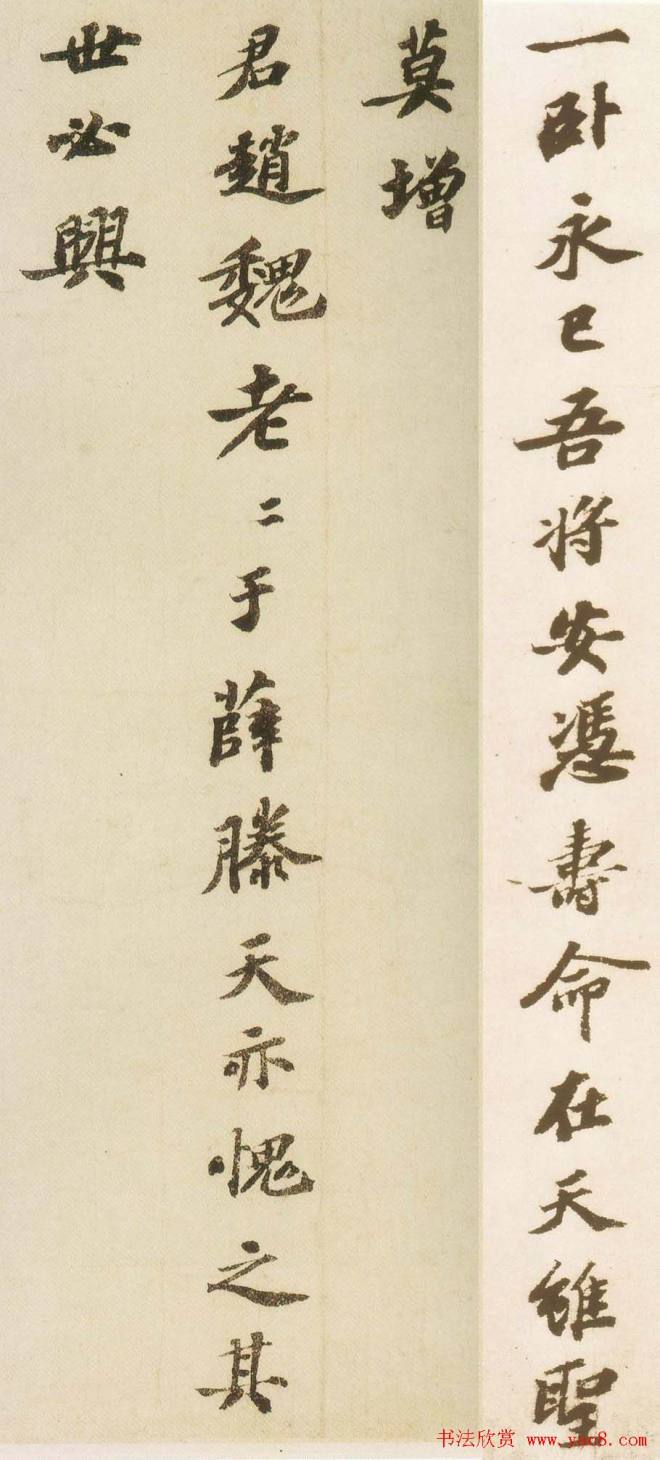 一卧永已吾将安憑壽命在天雖聖
莫增
君趙魏老二于薛滕天亦愧之其
世必興
书法欣赏 www.yac8.com